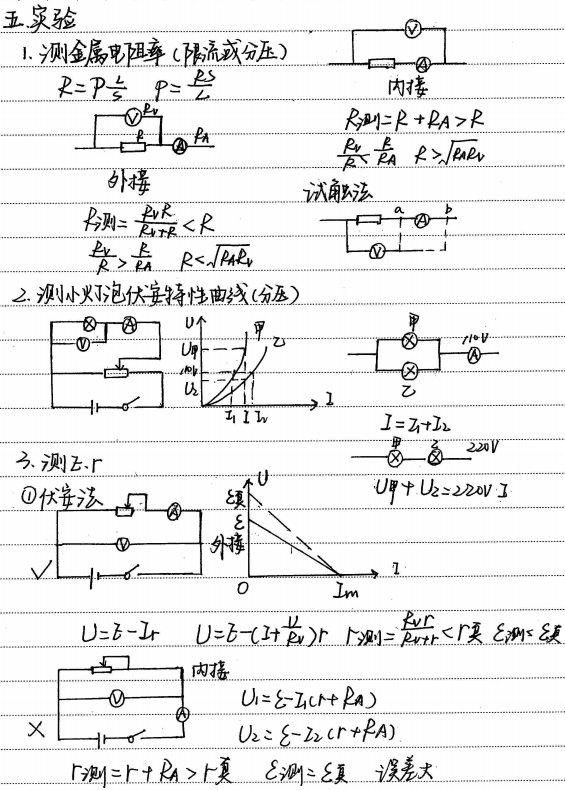 五.实验
1.测金属电阻率(限流或分压)
R=ρL/S ρ=RS/L
V
A
内接
R测=R+RA>R
RV/R<R/RA R>√RARV
RV
V
R
A
RA
外接
R测=RVR/(RV+R)<R
RV/R>R/RA R<√RARV
试触法
a b
A
V
2.测小灯泡伏安特性曲线(分压)
A
V
U
甲
乙
U甲
110V
U2
I1 I I2
I
甲
乙
110V
A
I=I1+I2
甲 乙 220V
U甲+U2=220V I
3.测E.r
①伏安法
A
V
✓
U
ε真
ε
外接
O Im I
U=E-Ir U=E-(I+U/RV)r r测=RVr/(RV+r)<r真 ε测<ε真
内接
V
A
×
U1=ε-I1(r+RA)
U2=ε-I2(r+RA)
r测=r+RA>r真 ε测=ε真 误差大